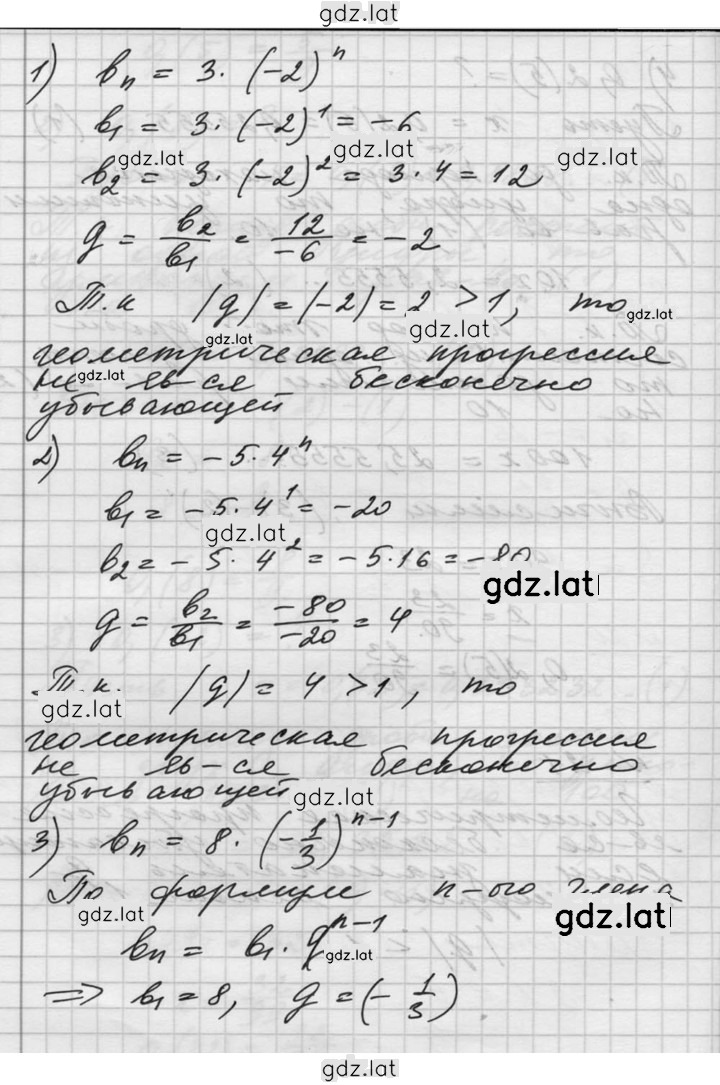 gdz.lat
1) bn = 3 · (-2)^n
b1 = 3 · (-2)^1 = -6
gdz.lat gdz.lat gdz.lat
b2 = 3 · (-2)^2 = 3 · 4 = 12
q = b2/b1 = 12/-6 = -2
Т.к |q| = |-2| = 2 > 1, то
gdz.lat gdz.lat gdz.lat
геометрическая прогрессия
не яв-ся бесконечно
gdz.lat
убывающей
2) bn = -5 · 4^n
b1 = -5 · 4^1 = -20
gdz.lat
b2 = -5 · 4^2 = -5 · 16 = -80
gdz.lat
q = b2/b1 = -80/-20 = 4
Т.к. |q| = 4 > 1, то
gdz.lat
геометрическая прогрессия
не яв-ся бесконечно
убывающей
gdz.lat
3) bn = 8 · (-1/3)^n-1
По формуле n-ого члена
gdz.lat gdz.lat
bn = b1 · q^n-1
gdz.lat
=> b1 = 8, q = (-1/3)
gdz.lat